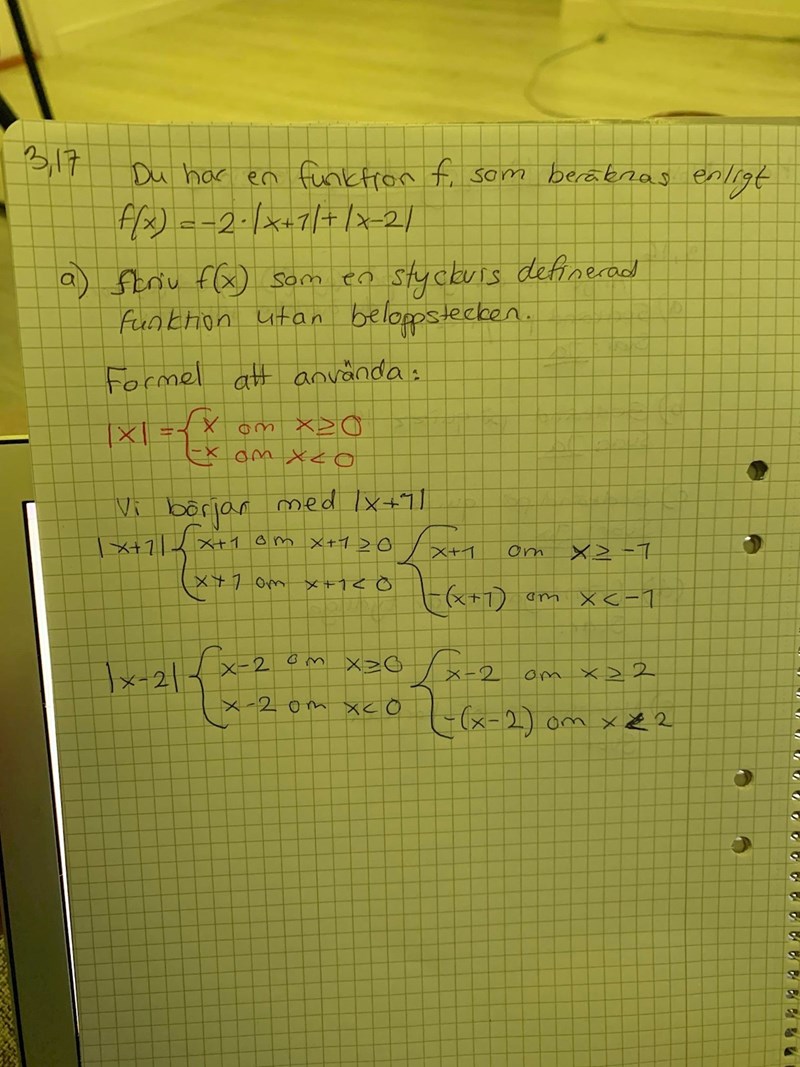 3,17 Du har en funktion f, som beräknas enligt
f(x) = -2·|x+1|+|x-2|
a) Skriv f(x) som en styckvis definerad
funktion utan beloppstecken.
Formel att använda:
|x| = { x om x≥0
-x om x<0
Vi börjar med |x+1|
|x+1| { x+1 om x+1≥0 { x+1 om x≥-1
x+1 om x+1<0 -(x+1) om x<-1
|x-2| { x-2 om x≥0 { x-2 om x≥2
x-2 om x<0 -(x-2) om x<2